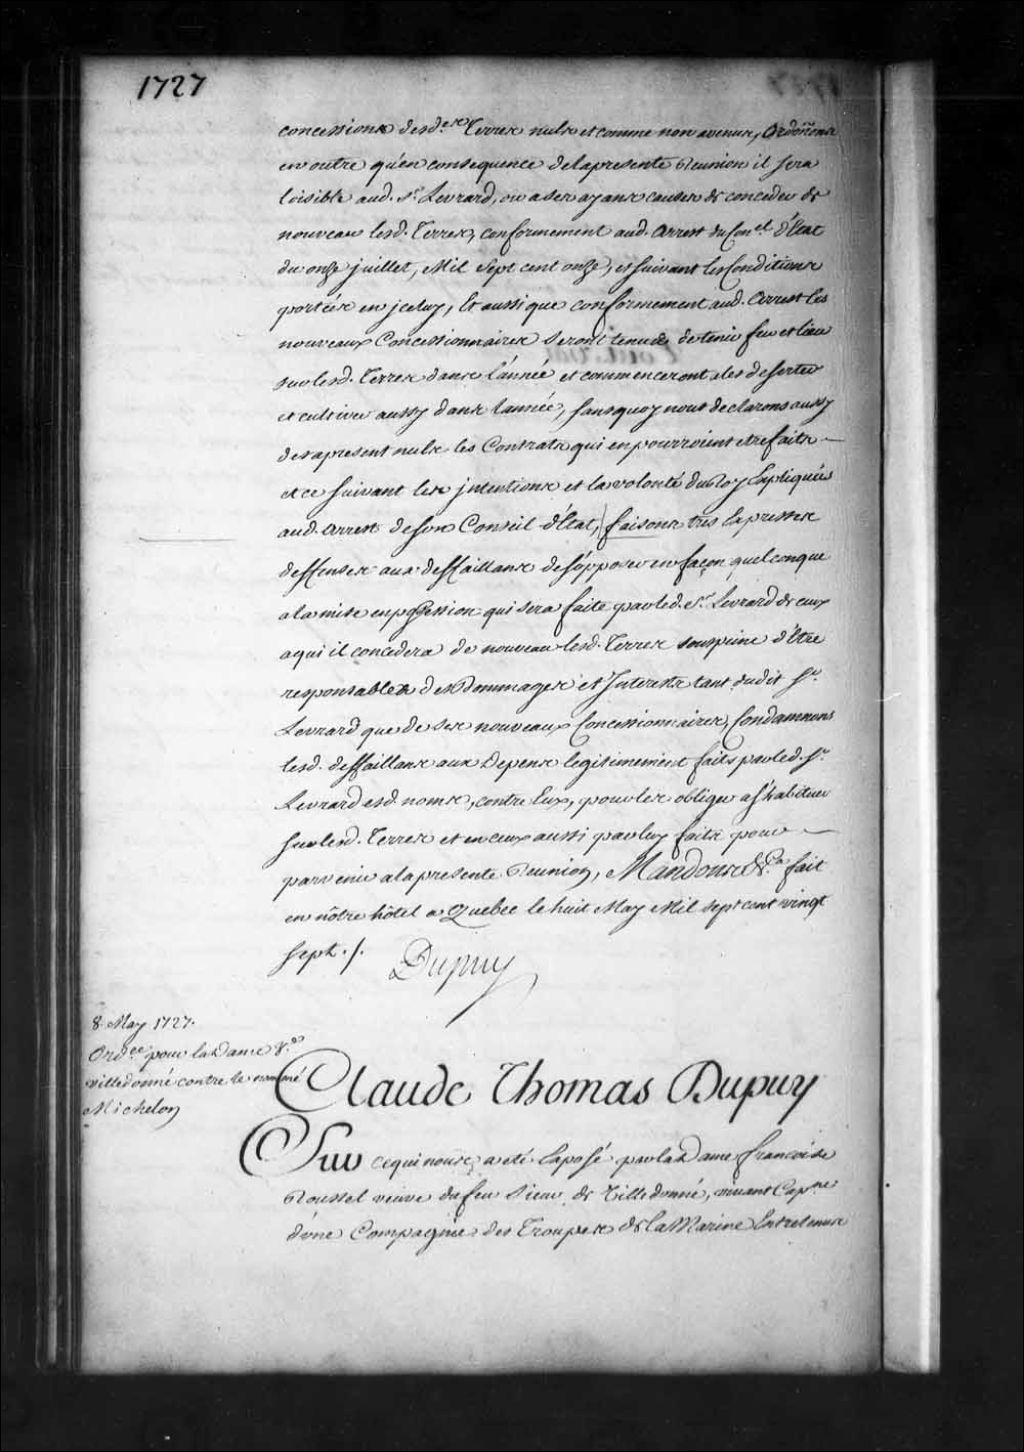 1727
concessions desd.es Terres nuls et comme non avenus, ordoñons
en outre qu'en consequence de la presente Reunion il sera
loisible aud. Sr. Levrard, ou a ses ayans causes de conceder de
nouveau lesd. Terres, conformement aud. Arrest du Con.el d'Etat
du onze juillet, Mil sept cent onze, et suivant les Conditions
portées en jceluy, Et aussi que conformement aud. Arrest les
nouveaux Concessionnaires seront tenus de tenir feu et lieu
sur lesd. Terres dans l'année et commenceront a les deserter
et cultiver aussy dans l'année, sans quoy nous declarons aussy
des apresent nuls les Contrats qui en pourroient etre faits
et ce suivant les jntentions et la volonté du Roy Expliquées
aud. Arrest de son Conseil d'Etat, faisons tres Expresses
deffenses aux deffaillans de s'opposer en façon quelconque
a la mise en possession qui sera faite par led. Sr. Levrard de ceux
a qui il concedera de nouveau lesd. Terres sous peine d'Etre
responsables des Dommages et Interests tant dudit Sr.
Levrard que de ses nouveaux Concessionnaires, Condamnons
lesd. deffaillans aux Depens legitimement faits par led. Sr.
Levrard esd. noms, contre Eux, pour les obliger a s'habituer
sur lesd. Terres et en ceux aussi par luy faits pour
parvenir a la presente Reunion, Mandons &.a fait
en nôtre hôtel a Quebec le huit May Mil sept cent vingt
sept./.
Dupuy
8. May 1727.
Ord.ce pour la Dame V.e
Villedonné contre le nommé
Michelon
Claude Thomas Dupuy
Sur ce qui nous a eté Exposé par la Dame francoise
Roussel veuve du feu Sieur de Villedonné, vivant Cap.ne
d'une Compagnie des Troupes de la Marine Entretenues